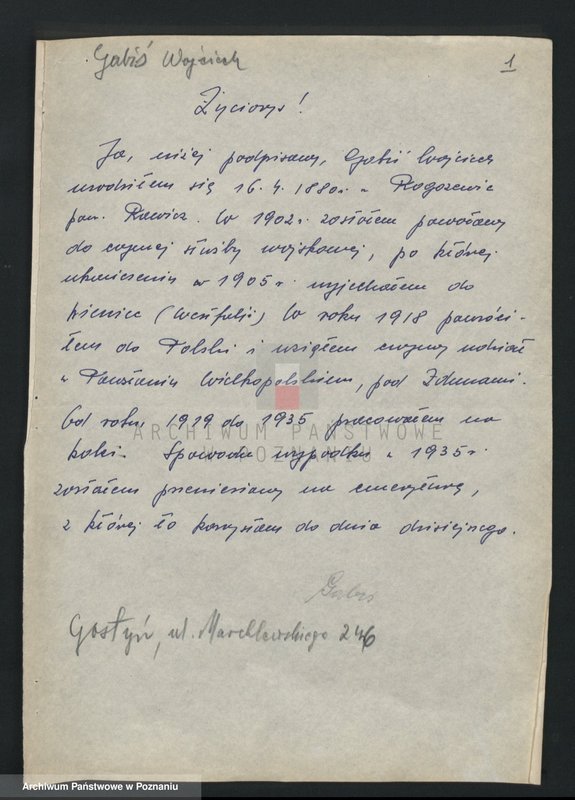 Gabiś Wojciech
1
Życiorys!
Ja, niżej podpisany, Gabiś Wojciech
urodziłem się 16.4.1880r. w Rogożewie
pow. Rawicz. W 1902r. zostałem powołany
do czynnej służby wojskowej, po której
ukończeniu w 1905r. wyjechałem do
Niemiec (Westfalji) W roku 1918 powróci-
łem do Polski i wziąłem czynny udział
w Powstaniu Wielkopolskiem, pod Zdunami.
Od roku 1919 do 1935 pracowałem na
kolei. Spowodu wypadku w 1935r.
zostałem przeniesiony na emeryturę,
z której to korzystam do dnia dzisiejszego.
ARCHIWUM PAŃSTWOWE
W POZNANIU
Gabiś
Gostyń, ul. Marchlewskiego 246
Archiwum Państwowe w Poznaniu